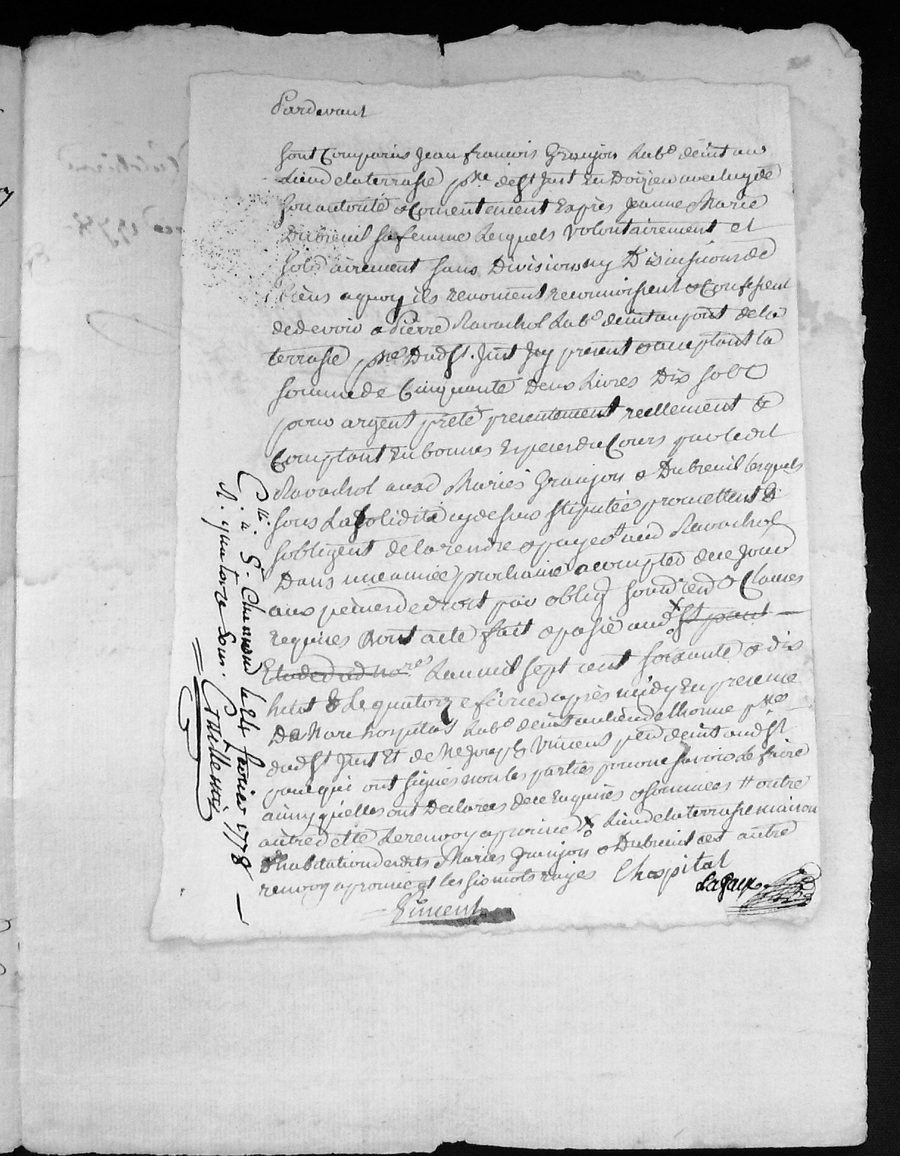 Pardevant
sont Comparus Jean francois Granjon Lab.r demt au
Lieu de la terrasse p.sse de St Just En Doizieu avec luy de
son autorité & Consentement Exprès Jeanne Marie
Dubreuil sa femme lesquels volontairement et
solidairement sans Division ny Discussion de
biens a quoy ils renoncent reconnoissent & Confessent
de devoir a Pierre Ravachol Lab.r demt au pont de la
terrasse p.sse Dud St. Just Icy present & acceptant la
somme de Cinquante Deux Livres Dix sols
pour argent prété presentement reellement &
Comptant En bonnes Especes du Cours par ledit
Ravachol auxd Mariés Granjon & Dubreuil lesquels
sous La solidité cy dessus stipulée promettent &
sobligent de la rendre & payer aud Ravachol
Dans une année prochaine a compter de ce Jour
aux peines de droit par oblig.
requises Dont acte fait & passé aud St paul
Etude dud no.re Lan mil sept cent soixante & dix
huit & le quatorze fevrier après midy En presence
De Marc hospital Lab.r demt au lieu de lhorme p.sse
dud St Just Et de Me Joseph Vincent demt aud St
paul qui ont signés non les parties pour ne savoir le faire
ainsy quelles ont Declarées de ce Enquises & sommées
autre dette Le renvoy approuvé Lieu de la terrasse maison
d'habitation desdits Mariés Granjon & Dubreuil cet autre
renvoy approuvé & les six mots rayés Lhospital
Vincent
C.llé à St. Chamond le 24 fevrier 1778
R. quatorze sous